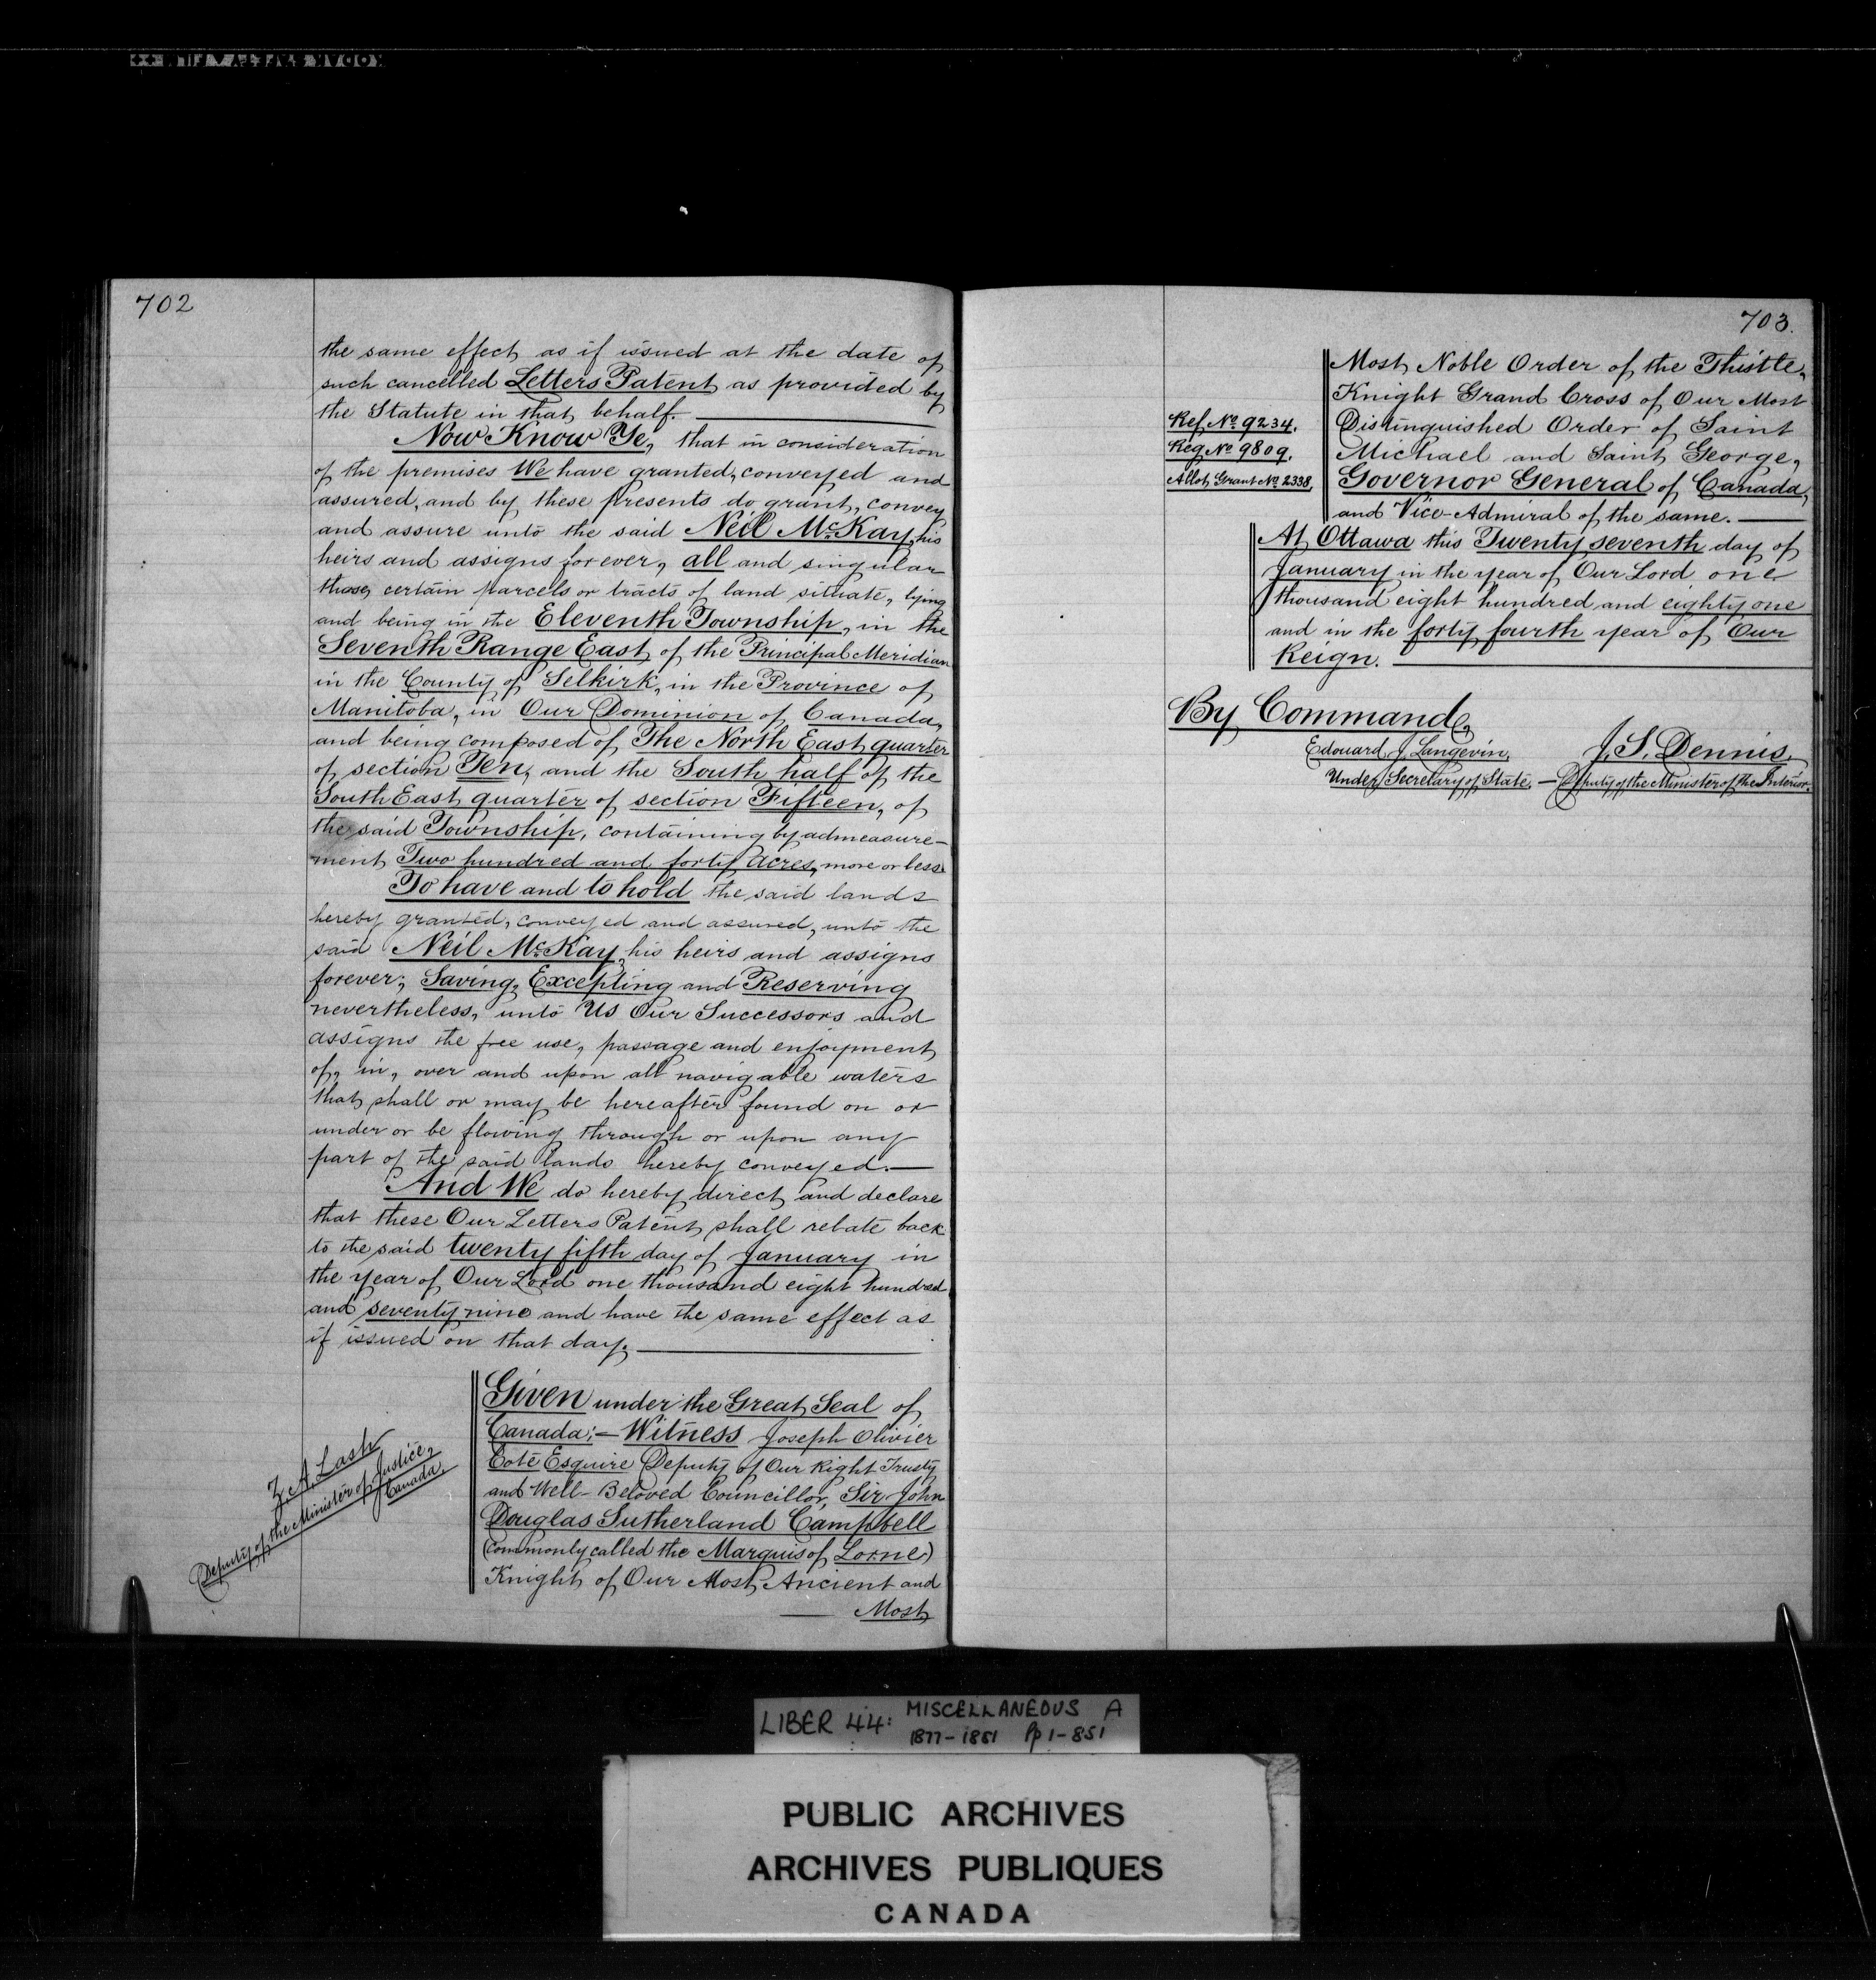 702
the same effect as if issued at the date of
such cancelled Letters Patent as provided by
the Statute in that behalf.
Now Know Ye, that in consideration
of the premises We have granted, conveyed and
assured, and by these presents do grant, convey
and assure unto the said Neil McKay, his
heirs and assigns forever, all and singular
those certain parcels or tracts of land situate, lying
and being in the Eleventh Township, in the
Seventh Range East of the Principal Meridian
in the County of Selkirk, in the Province of
Manitoba, in Our Dominion of Canada,
and being composed of The North East quarter
of section Ten, and the South half of the
South East quarter of section Fifteen, of
the said Township, containing by admeasure-
ment Two hundred and forty Acres, more or less.
To have and to hold the said lands
hereby granted, conveyed and assured, unto the
said Neil McKay, his heirs and assigns
forever; Saving, Excepting and Reserving
nevertheless, unto Us Our Successors and
assigns the free use, passage and enjoyment
of, in, over and upon all navigable waters
that shall or may be hereafter found on or
under or be flowing through or upon any
part of the said lands hereby conveyed.—
And We do hereby direct and declare
that these Our Letters Patent shall relate back
to the said twenty fifth day of January in
the year of Our Lord one thousand eight hundred
and seventy nine and have the same effect as
if issued on that day.
Given under the Great Seal of
Canada:— Witness Joseph Olivier
Coté Esquire Deputy of Our Right Trusty
and Well-Beloved Councillor, Sir John
Douglas Sutherland Campbell
(commonly called the Marquis of Lorne)
Knight of Our Most Ancient and
Most
Z. A. Lash
Deputy of the Minister of Justice,
Canada.
703.
Most Noble Order of the Thistle,
Knight Grand Cross of Our Most
Distinguished Order of Saint
Michael and Saint George,
Governor General of Canada,
and Vice-Admiral of the same.—
Ref. No. 9234.
Reg. No. 9809.
Allot. Grant No. 2338.
At Ottawa this Twenty seventh day of
January in the year of Our Lord one
thousand eight hundred and eighty one
and in the forty fourth year of Our
Reign.
By Command,
Edouard J. Langevin,
Under Secretary of State,
J. S. Dennis,
— Deputy of the Minister of the Interior.
LIBER 44: MISCELLANEOUS A
1877-1881 Pp 1-851
PUBLIC ARCHIVES
ARCHIVES PUBLIQUES
CANADA